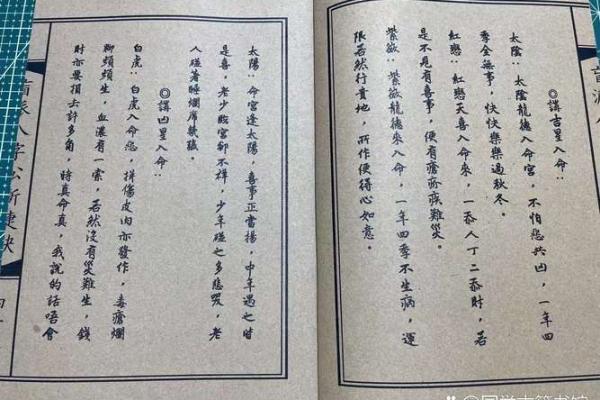 盲派
◎講吉星入命：
太陰：太陰龍德入命宮，不怕惡共凶，一年四
季全無事，快快樂樂過秋冬。
紅戀：紅戀天喜入命來，一添人丁二添財，若
是不見有喜事，便有瘡疥疾難災。
紫薇：紫薇龍德來入命，一年四季不生病，運
限若然行貴地，所作便得心如意。
太陽：命宮逢太陽，喜事正當揚，中年遇之時
是喜，老少败宮都不祥，少年碰之多悲哭，老
人碰著睡爛席裝殮。
◎講凶星入命：
白虎：白虎入命惡，拼傷皮肉亦發作，毒瘡爛
腳頭頭生，血濃有一索，若然沒有災難生，錢
財亦要損去許多角，時真命真，我說的話唔會
盲派八字公析捷訣
四